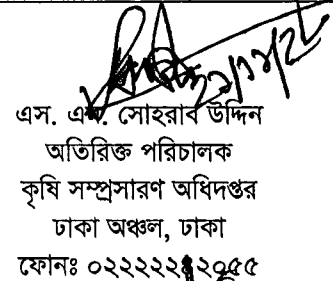 এস. এম. সোহরাব উদ্দিন
অতিরিক্ত পরিচালক
কৃষি সম্প্রসারণ অধিদপ্তর
ঢাকা অঞ্চল, ঢাকা
ফোনঃ